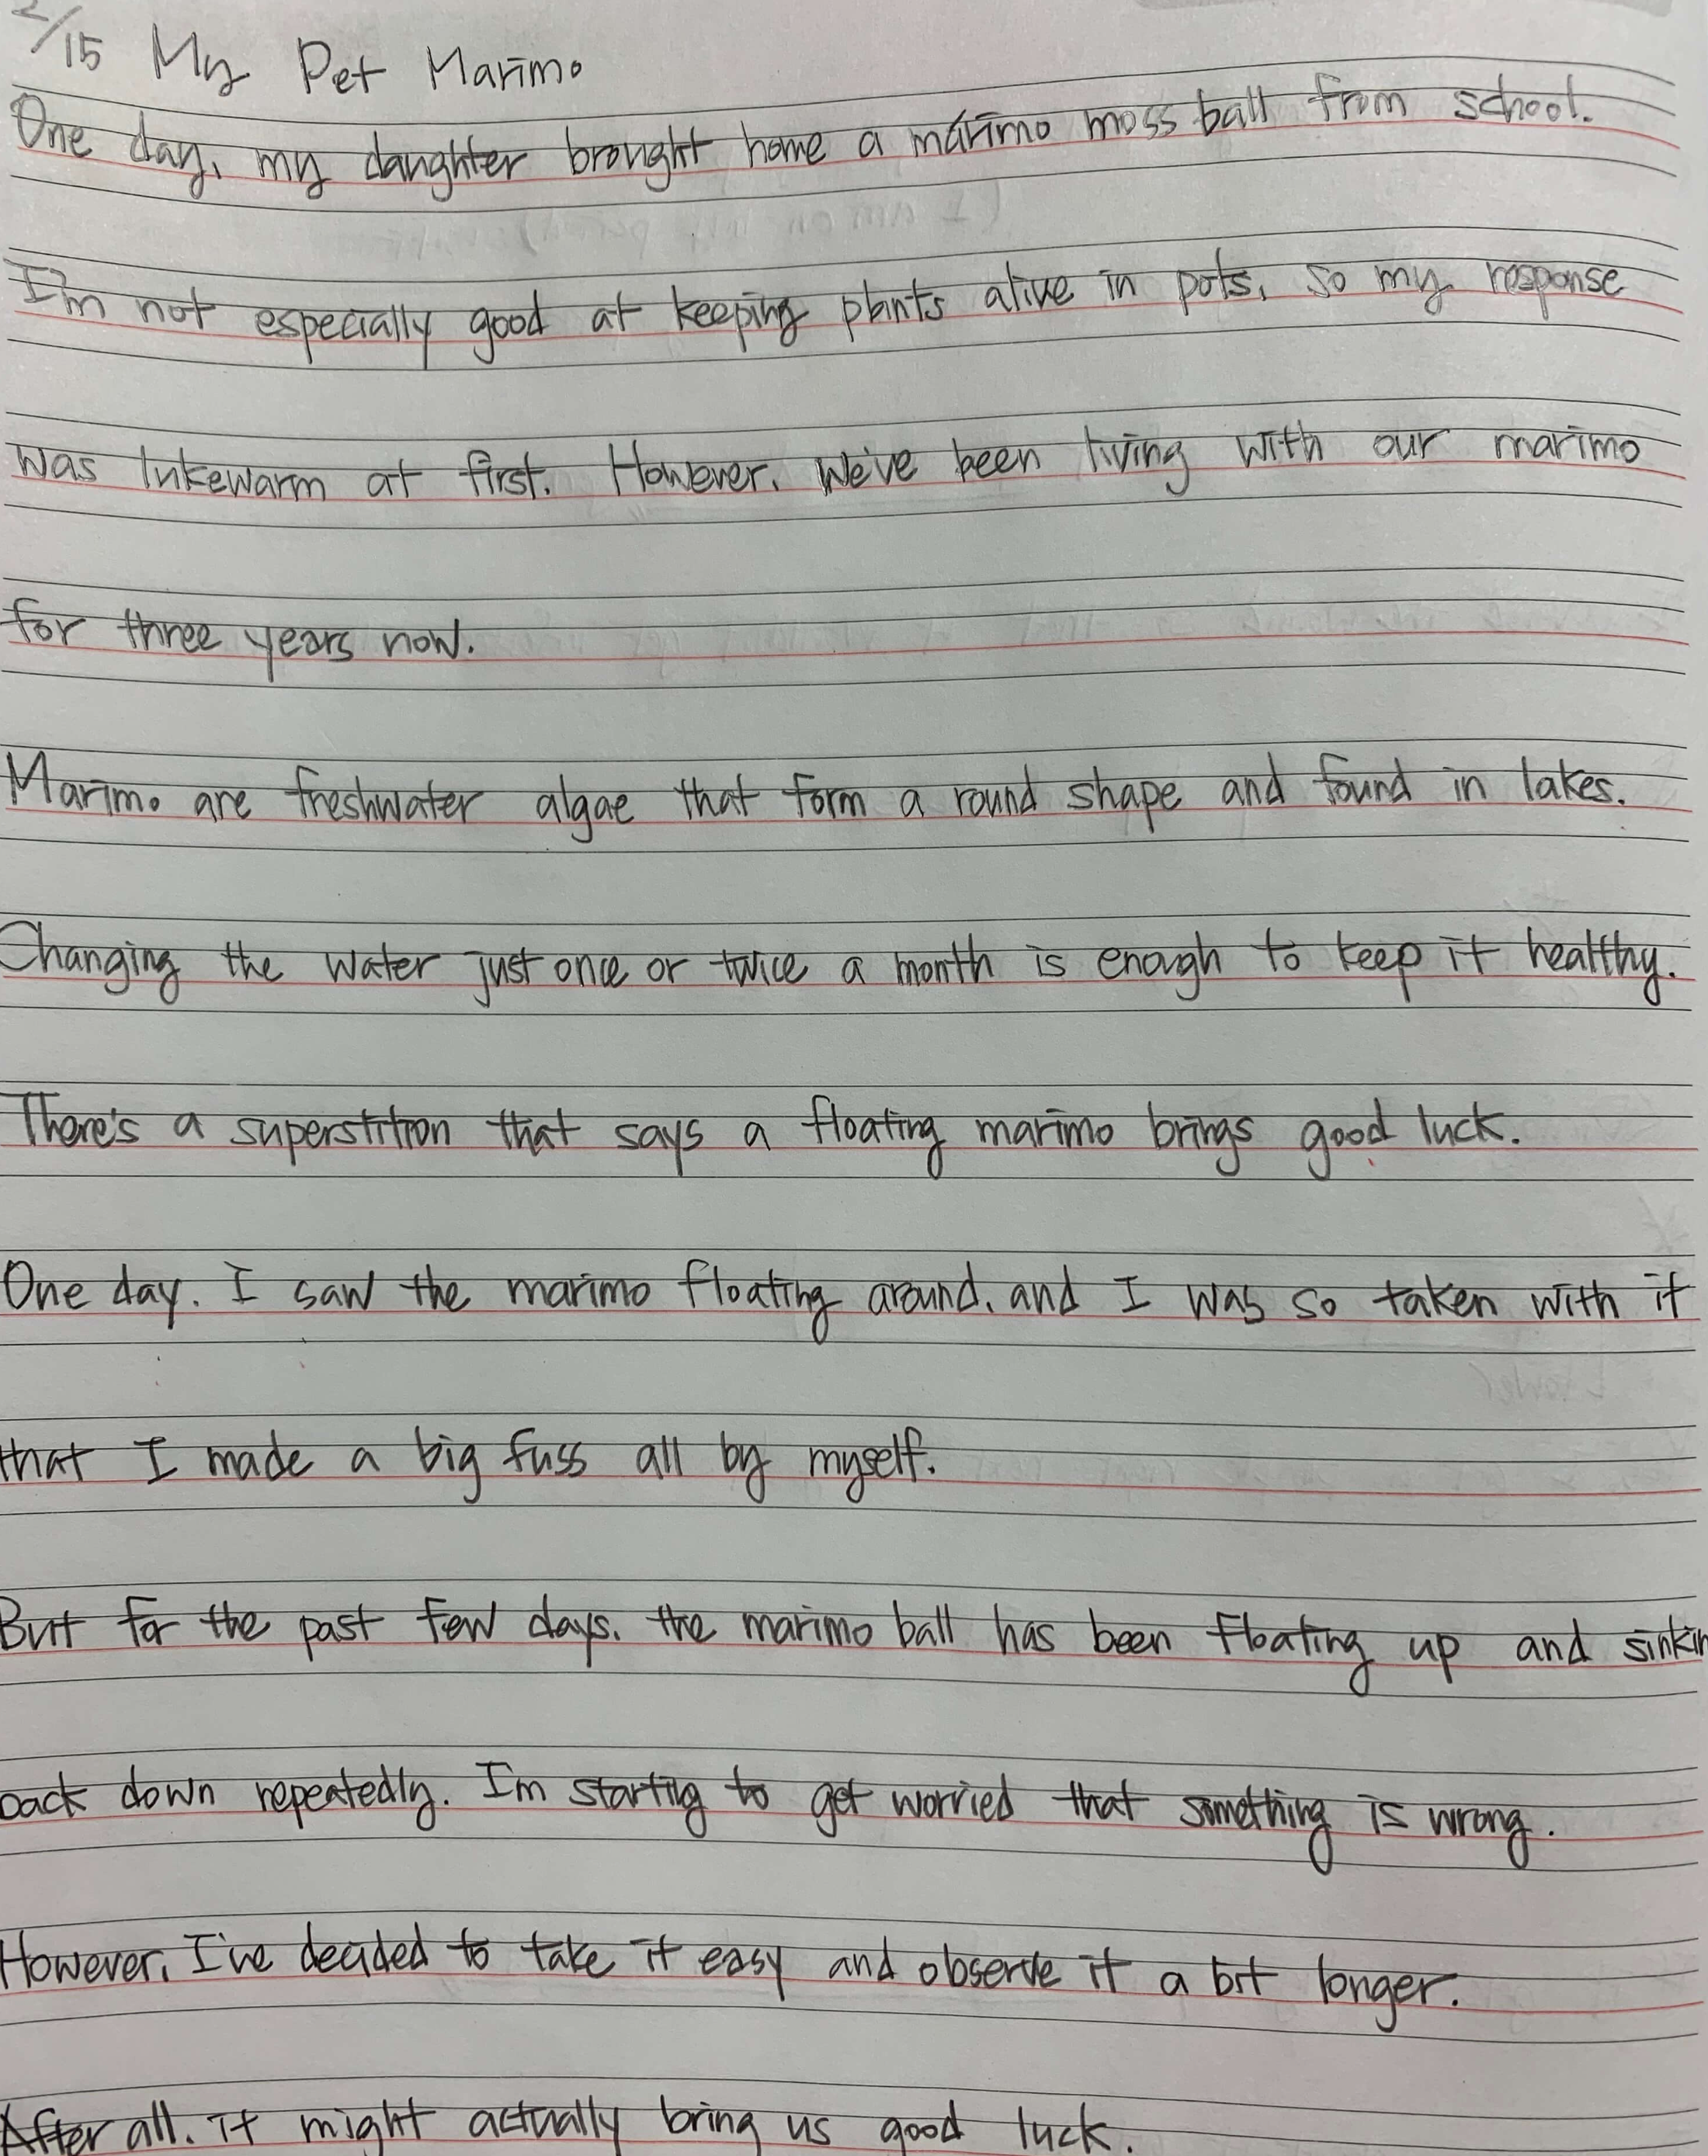 2/15 My Pet Marimo
One day, my daughter brought home a marimo moss ball from school.
I'm not especially good at keeping plants alive in pots, so my response
was lukewarm at first. However, we've been living with our marimo
for three years now.
Marimo are freshwater algae that form a round shape and found in lakes.
Changing the water just once or twice a month is enough to keep it healthy.
There's a superstition that says a floating marimo brings good luck.
One day, I saw the marimo floating around, and I was so taken with it
that I made a big fuss all by myself.
But for the past few days, the marimo ball has been floating up and sinkin
back down repeatedly. I'm starting to get worried that something is wrong.
However, I've decided to take it easy and observe it a bit longer.
After all, it might actually bring us good luck.